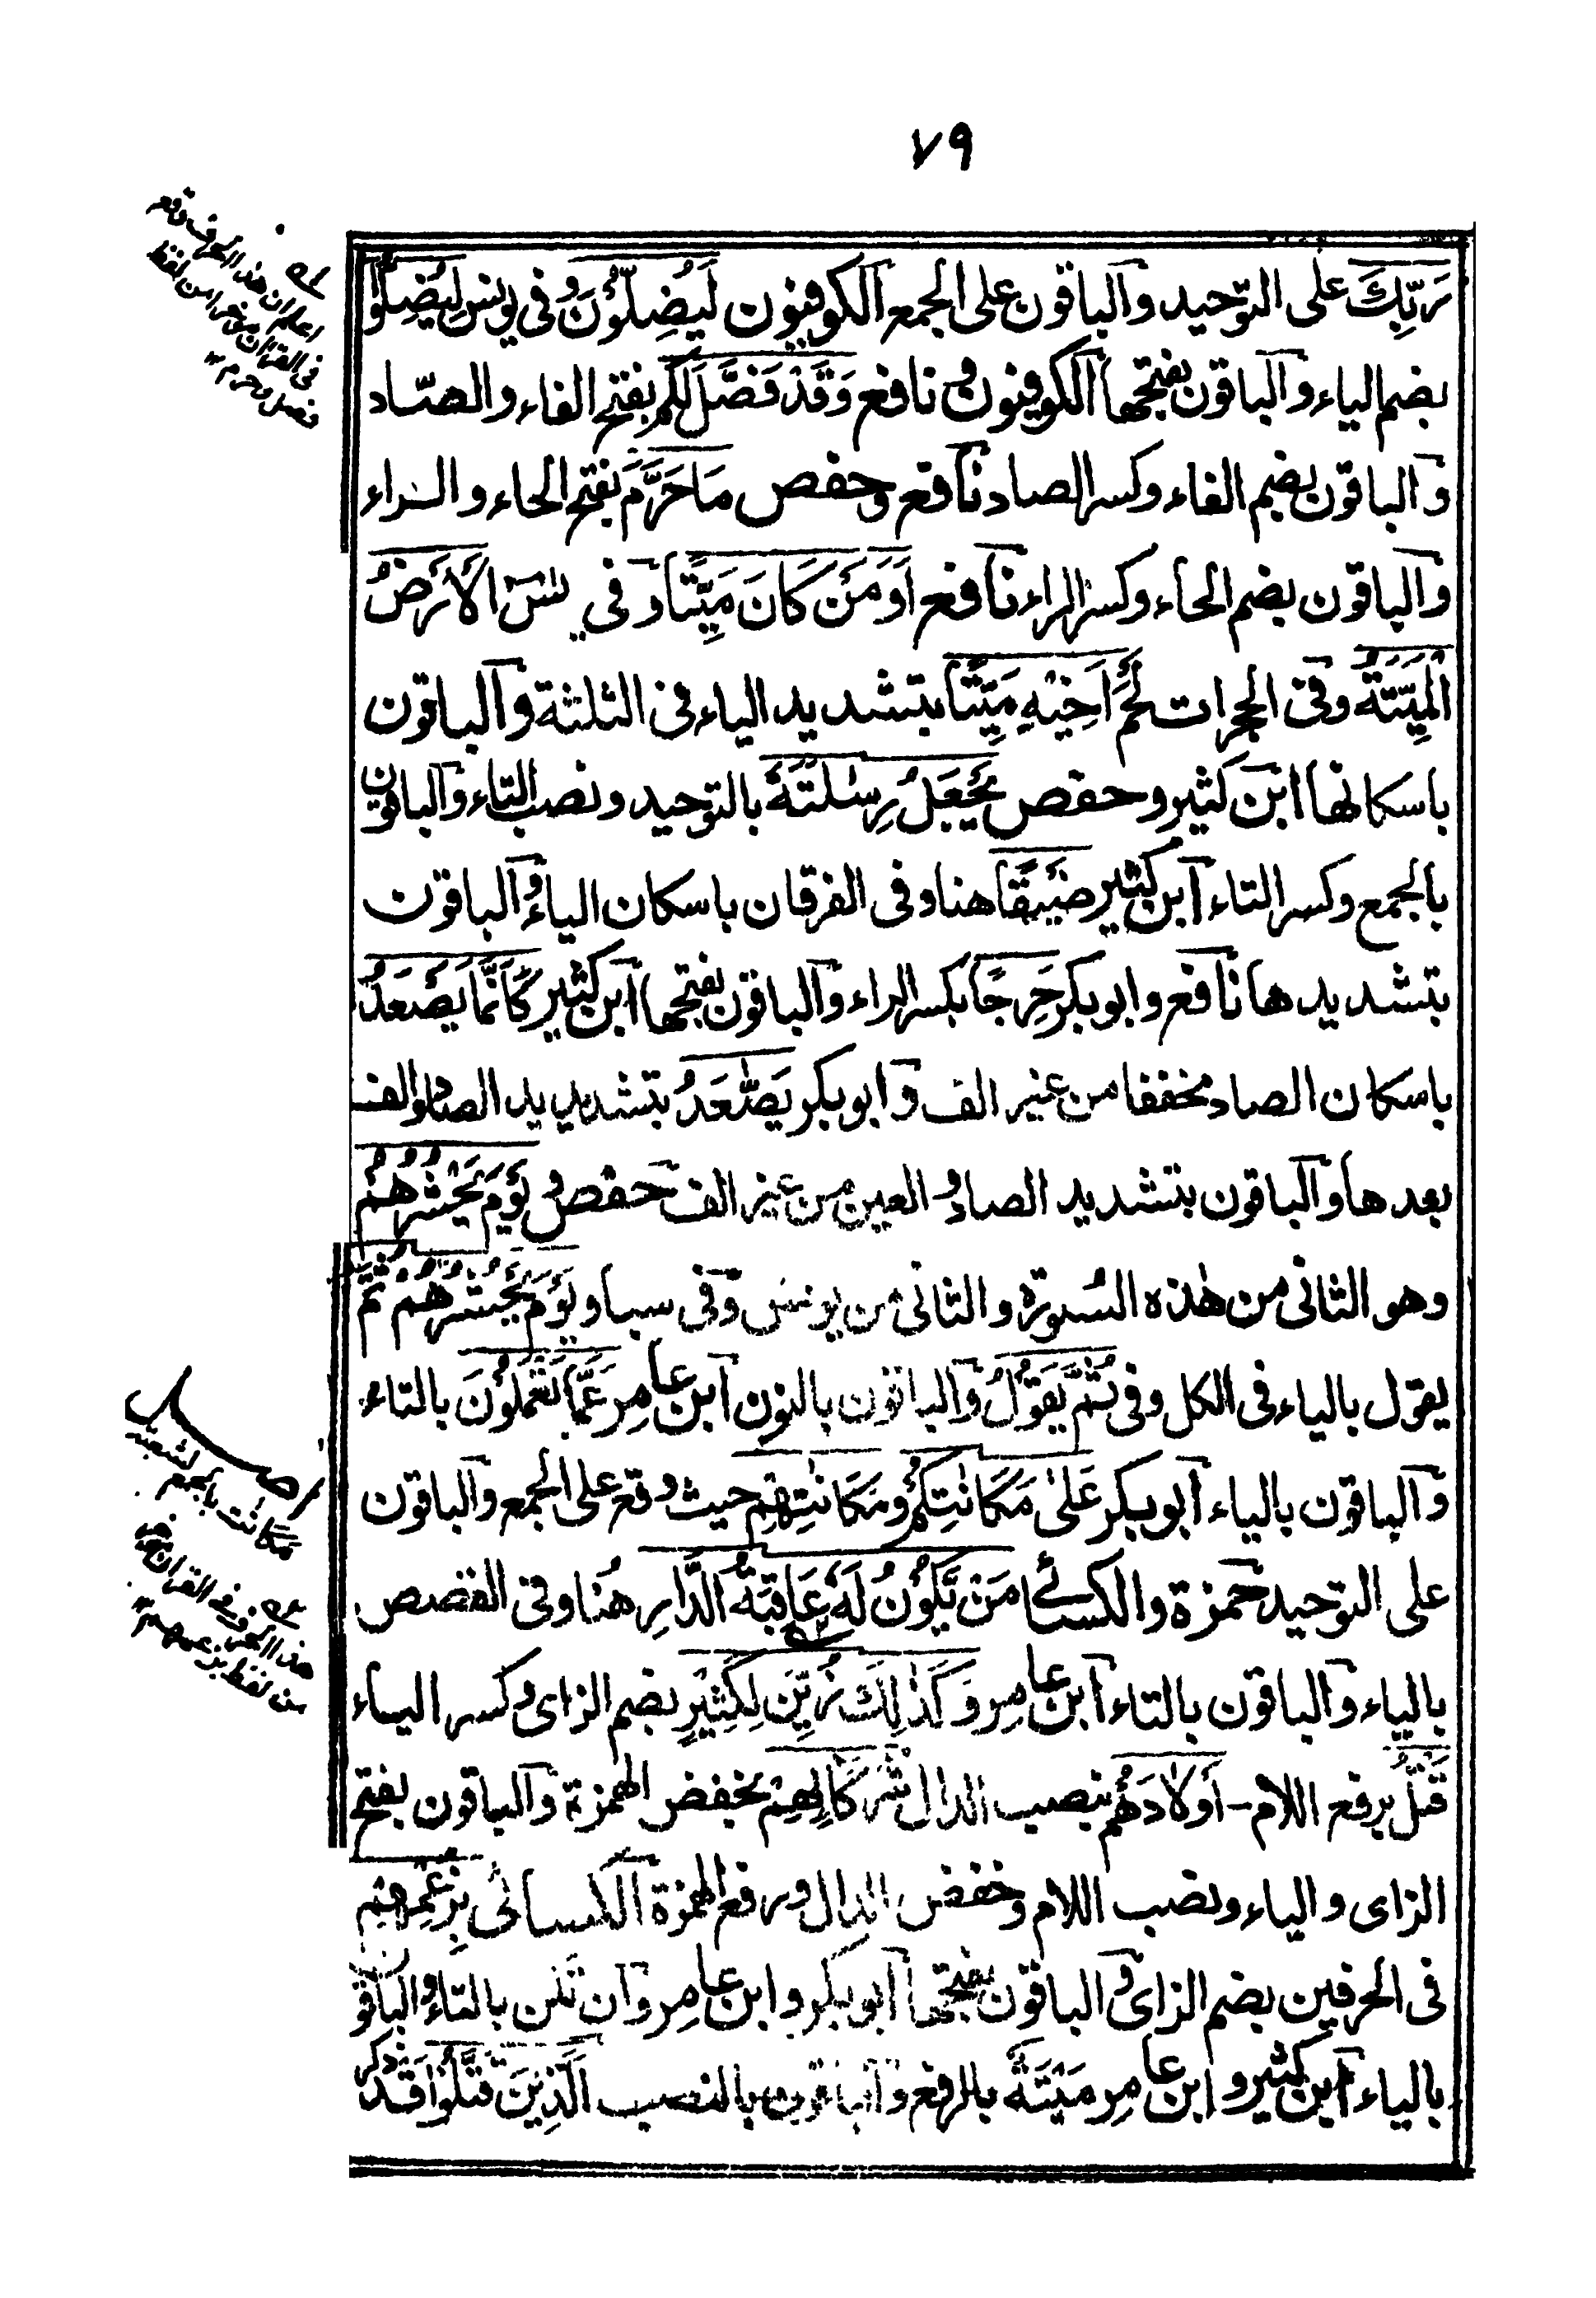 ٧٩
رَبِّكَ على التوحيد والباقون على الجمع الكوفيون لَيُضِلُّوْنَ وفى يونس لِيُضِلُّوْا
بضم الياء والباقون بفتحها الكوفيون و نافع وَقَدْ فَصَّلَ لَكُمْ بفتح الفاء والصّاد
والباقون بضم الفاء وكسر الصاد نافع وحفص مَا حَرَّمَ بفتح الحاء والراء
والباقون بضم الحاء وكسر الراء نافع اَوَمَنْ كَانَ مَيِّتًا وفي يٰسۤ اَلْاَرْضُ
الْمَيِّتَةُ وفى الحجرات لَحْمَ اَخِيْهِ مَيِّتًا بتشديد الياء فى الثلثة والباقون
باسكانها ابن كثير وحفص يَجْعَلُ رِسٰلَتَهٗ بالتوحيد ونصب التاء والباقون
بالجمع وكسر التاء ابن كثير ضَيْقًا هنا وفى الفرقان باسكان الياء والباقون
بتشديدها نافع وابوبكر حَرِجًا بكسر الراء والباقون بفتحها ابن كثير كَاَنَّمَا يَصْعَدُ
باسكان الصاد مخففا من غير الف وابوبكر يَصّٰعَدُ بتشديد يد الصاد والف
بعدها والباقون بتشديد الصاد والعين من غير الف حفص و يَوْمَ يَحْشُرُهُمْ
وهو الثانى من هٰذه السُورة والثانى من يونس وفى سبا ويَوْمَ يَحْشُرُهُمْ ثُمَّ
يقول بالياء فى الكل وفى ثُمَّ يَقُوْلُ والباقون بالنون ابن عامر عَمَّا تَعْمَلُوْنَ بالتاء
والباقون بالياء ابوبكر عَلٰى مَكَانٰتِكُمْ ومَكَانٰتِهِمْ حيث وقع على الجمع والباقون
على التوحيد حمزة والكسائے مَنْ يَّكُوْنُ لَهٗ عَاقِبَةُ الدَّارِ هُنا وفى القصص
بالياء والباقون بالتاء ابن عامر وَكَذٰلِكَ زُيِّنَ لِكَثِيْرٍ بضم الزاى وكسر الياء
قَتْلُ برفع اللام - اَوْلَادَهُمْ بنصب الدال شُرَكَائِهِمْ بخفض الهمزة والباقون بفتح
الزاى والياء ونصب اللام وخفض الدال ورفع الهمزة الكسائى بِزُعْمِهِمْ
فى الحرفين بضم الزاى والباقون بفتحها ابوبكر وابن عامر وان تكن بالتاء والباقون
بالياء ابن كثير وابن عامر مَيْتَةٌ بالرفع والباقون بالنصب الَّذِيْنَ قَتَّلُوْا قد ذكر
اعلم ان هذا الحرف وقع
فى القرآن
فصل وحرم
مكانٰت بالجمع لشعبة
هذا الحرف فى القرآن
من لفظ بزعمهم